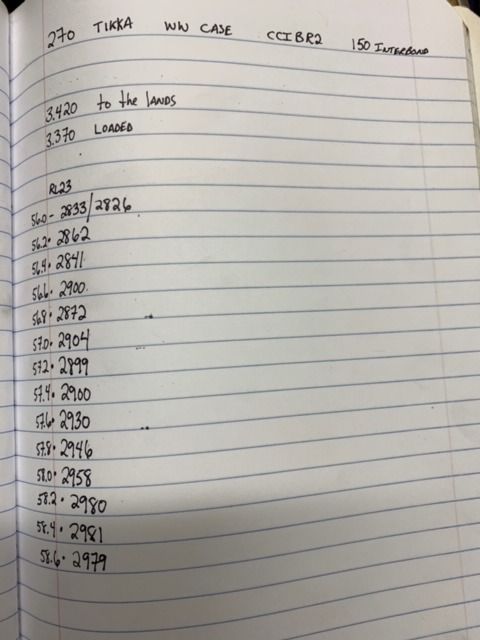 270 TIKKA WW CASE CCI BR2 150 INTERBOND
3.420 to the LANDS
3.370 LOADED
RL23
56.0- 2833/2826
56.2• 2862
56.4• 2841
56.6• 2900
56.8• 2872
57.0• 2904
57.2• 2899
57.4• 2900
57.6• 2930
57.8• 2946
58.0• 2958
58.2• 2980
58.4• 2981
58.6• 2979